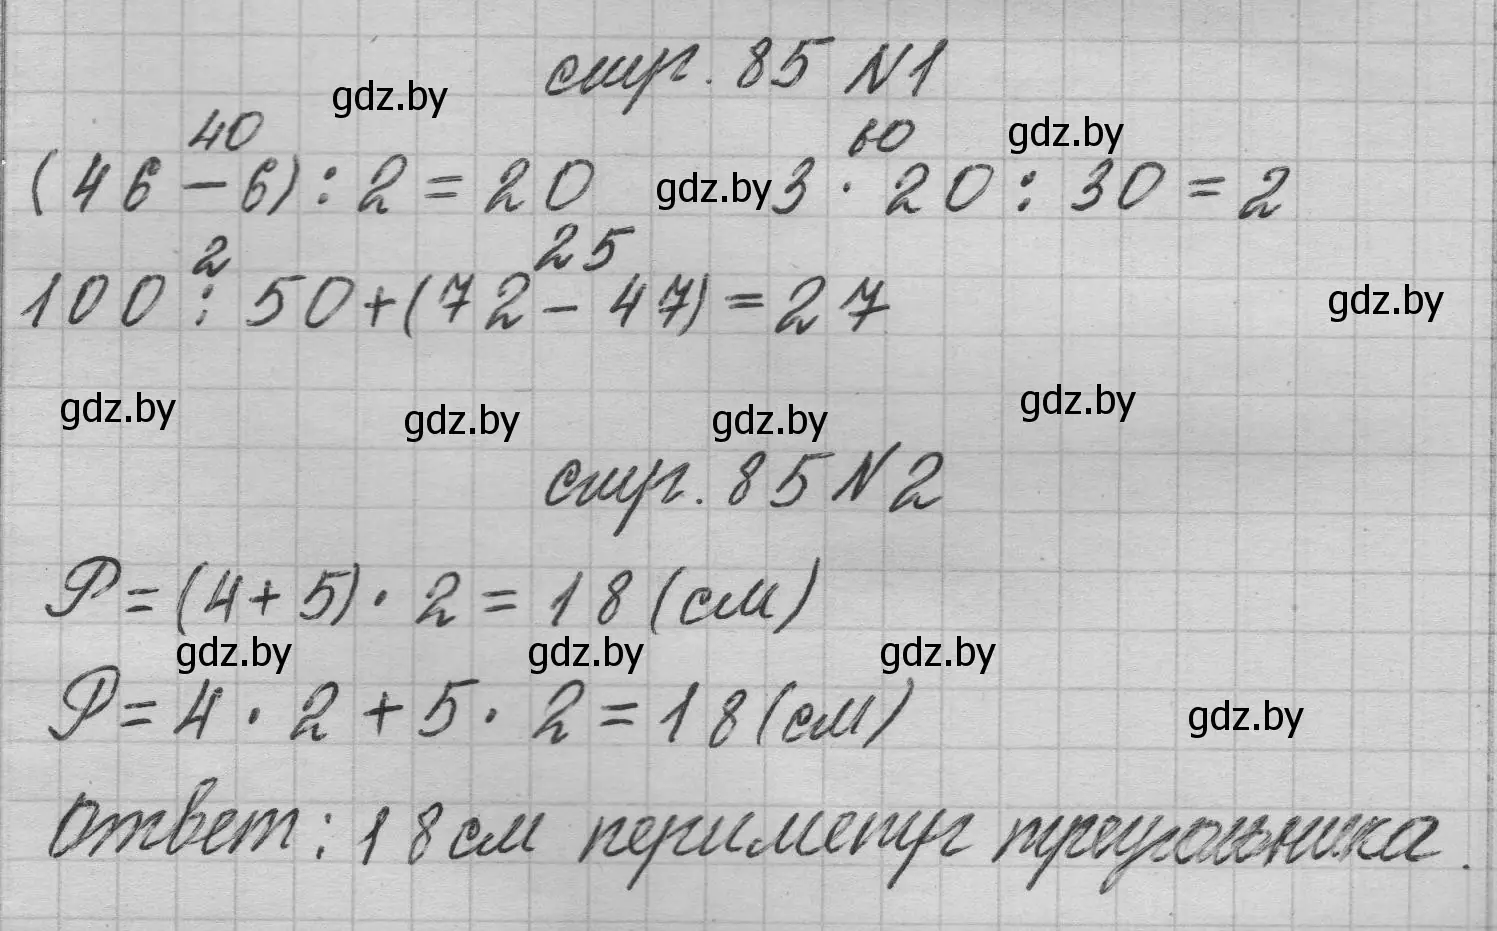 стр. 85 N1
gdz.by
40 60 gdz.by
(46 - 6) : 2 = 20 gdz.by 3 · 20 : 30 = 2
2 25
100 : 50 + (72 - 47) = 27 gdz.by
gdz.by gdz.by gdz.by gdz.by
стр. 85 N2
P = (4 + 5) · 2 = 18 (см)
gdz.by gdz.by gdz.by
P = 4 · 2 + 5 · 2 = 18 (см) gdz.by
Ответ: 18 см периметр треугольника.